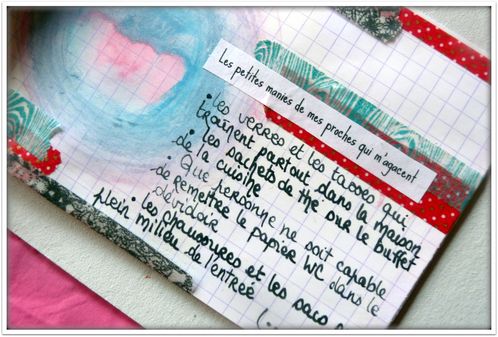 Les petites manies de mes proches qui m'agacent
• Les verres et les tasses qui
traînent partout dans la maison
• Les sachets de thé sur le buffet
de la cuisine
• Que personne ne soit capable
de remettre le papier WC dans le
dévidoir
• les chaussures et les sacs
plein milieu de l'entrée